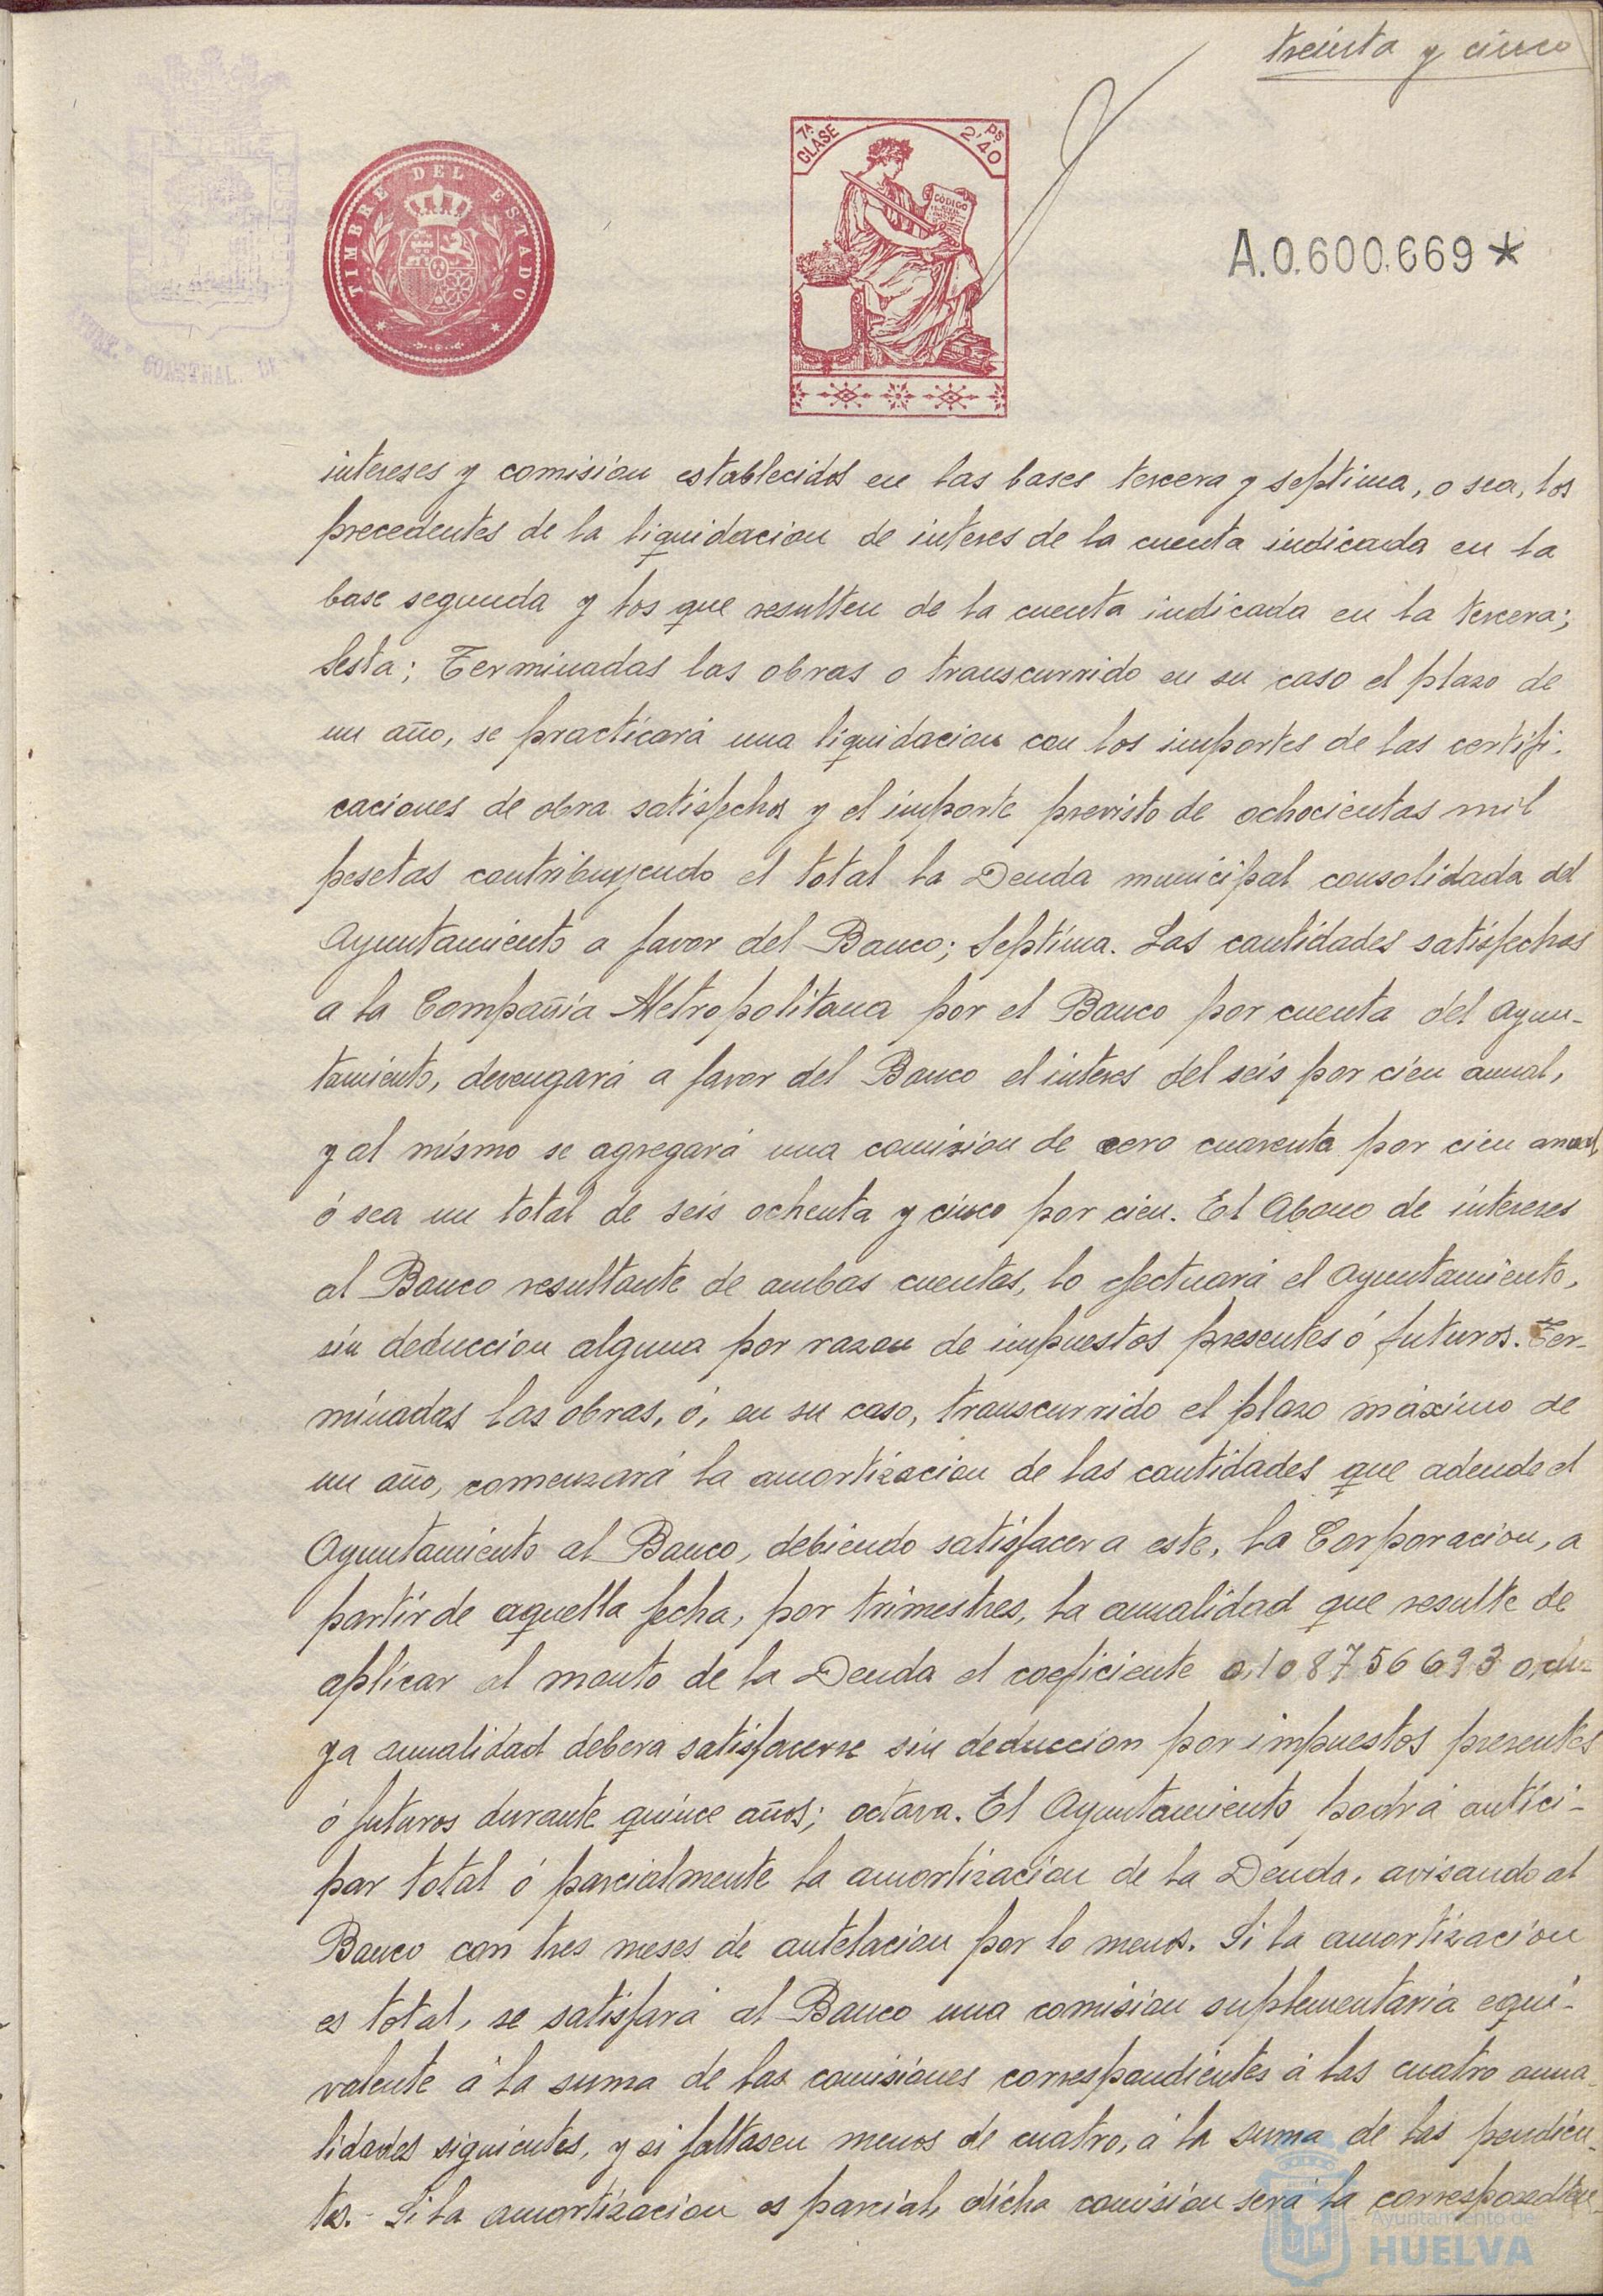 treinta y cinco
TIMBRE DEL ESTADO
7ª CLASE
2'40 Ps
CODIGO
A.0.600.669*
intereses y comisión establecidos en las bases tercera y septima, o sea, los
precedentes de la liquidacion de interes de la cuenta indicada en la
base segunda y los que resulten de la cuenta indicada en la tercera;
Sesta; Terminadas las obras o transcurrido en su caso el plazo de
un año, se practicará una liquidacion con los importes de las certifi-
caciones de obra satisfechos y el importe previsto de ochocientas mil
pesetas contribuyendo el total la Deuda municipal consolidada del
Ayuntamiento a favor del Banco; Septima. Las cantidades satisfechas
a la Compañia Metropolitana por el Banco por cuenta del Ayun-
tamiento, devengará a favor del Banco el interes del seis por cien anual,
y al mismo se agregará una comision de cero cuarenta por cien anual,
ó sea un total de seis ochenta y cinco por cien. El Abono de intereses
al Banco resultante de ambas cuentas, lo efectuará el Ayuntamiento,
sin deduccion alguna por razon de impuestos presentes ó futuros. Ter-
minadas las obras, ó, en su caso, transcurrido el plazo máximo de
un año, comenzará la amortizacion de las cantidades que adeude el
Ayuntamiento al Banco, debiendo satisfacer a este, la Corporacion, a
partir de aquella fecha, por trimestres, la anualidad que resulte de
aplicar al monto de la Deuda el coeficiente 0,108756693 0, cu-
ya anualidad debera satisfacerse sin deduccion por impuestos presentes
ó futuros durante quince años; octava. El Ayuntamiento podrá antici-
par total ó parcialmente la amortizacion de la Deuda, avisando al
Banco con tres meses de antelacion por lo menos. Si la amortizacion
es total, se satisfará al Banco una comision suplementaria equi-
valente á la suma de las comisiones correspondientes á las cuatro anua-
lidades siguientes, y si faltasen menos de cuatro, á la suma de las pendien-
tes.- Si la amortizacion es parcial, dicha comision será la correspondien-
Ayuntamiento de
HUELVA